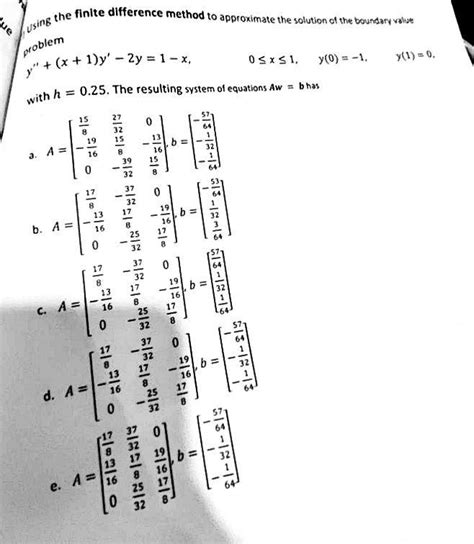 ue
Using the finite difference method to approximate the solution of the boundary value
problem
y'' + (x + 1)y' − 2y = 1 − x, 0 ≤ x ≤ 1, y(0) = −1, y(1) = 0,
with h = 0.25. The resulting system of equations Aw = b has
a. A = [15/8 27/32 0; −19/16 15/8 −13/16; 0 −39/32 15/8], b = [−57/64; −1/32; −1/64]
b. A = [17/8 −37/32 0; −13/16 17/8 −19/16; 0 −25/32 17/8], b = [−53/64; 1/32; 3/64]
c. A = [17/8 −37/32 0; −13/16 17/8 −19/16; 0 −25/32 17/8], b = [57/64; 1/32; 1/64]
d. A = [17/8 −37/32 0; −13/16 17/8 −19/16; 0 −25/32 17/8], b = [−57/64; −1/32; −1/64]
e. A = [17/8 37/32 0; 13/16 17/8 19/16; 0 25/32 17/8], b = [−57/64; −1/32; −1/64]